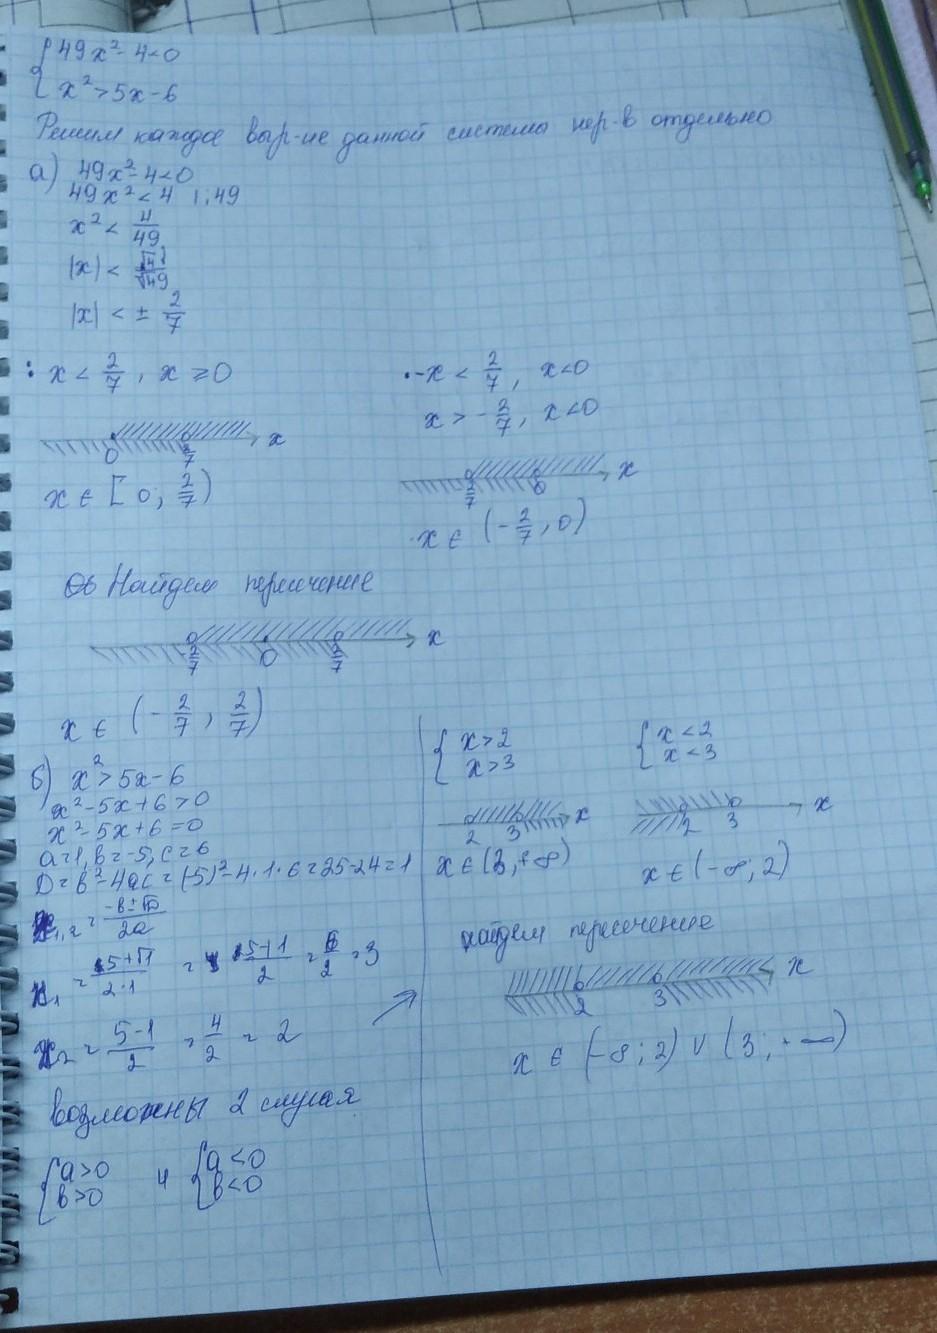 { 49x² - 4 < 0
x² > 5x - 6
Решим каждое выр-ие данной системы нер-в отдельно
а) 49x² - 4 < 0
49x² < 4 | : 49
x² < 4/49
|x| < √4/√49
|x| < ± 2/7
: x < 2/7, x ≥ 0
· -x < 2/7, x < 0
x > -2/7, x < 0
0 2/7 x
-2/7 0 x
x ∈ [0; 2/7)
x ∈ (-2/7, 0)
Найдем пересечение
-2/7 0 2/7 x
x ∈ (-2/7, 2/7)
б) x² > 5x - 6
x² - 5x + 6 > 0
x² - 5x + 6 = 0
a = 1, b = -5, c = 6
D = b² - 4ac = (-5)² - 4·1·6 = 25 - 24 = 1
x₁,₂ = (-b ± √D)/2a
x₁ = (5 + √1)/(2·1) = (5 + 1)/2 = 6/2 = 3
x₂ = (5 - 1)/2 = 4/2 = 2
возможны 2 случая
{ a > 0 и { a < 0
b > 0 b < 0
{ x > 2 { x < 2
x > 3 x < 3
2 3 x
2 3 x
x ∈ (3, +∞)
x ∈ (-∞; 2)
найдем пересечение
2 3 x
x ∈ (-∞; 2) ∪ (3; +∞)